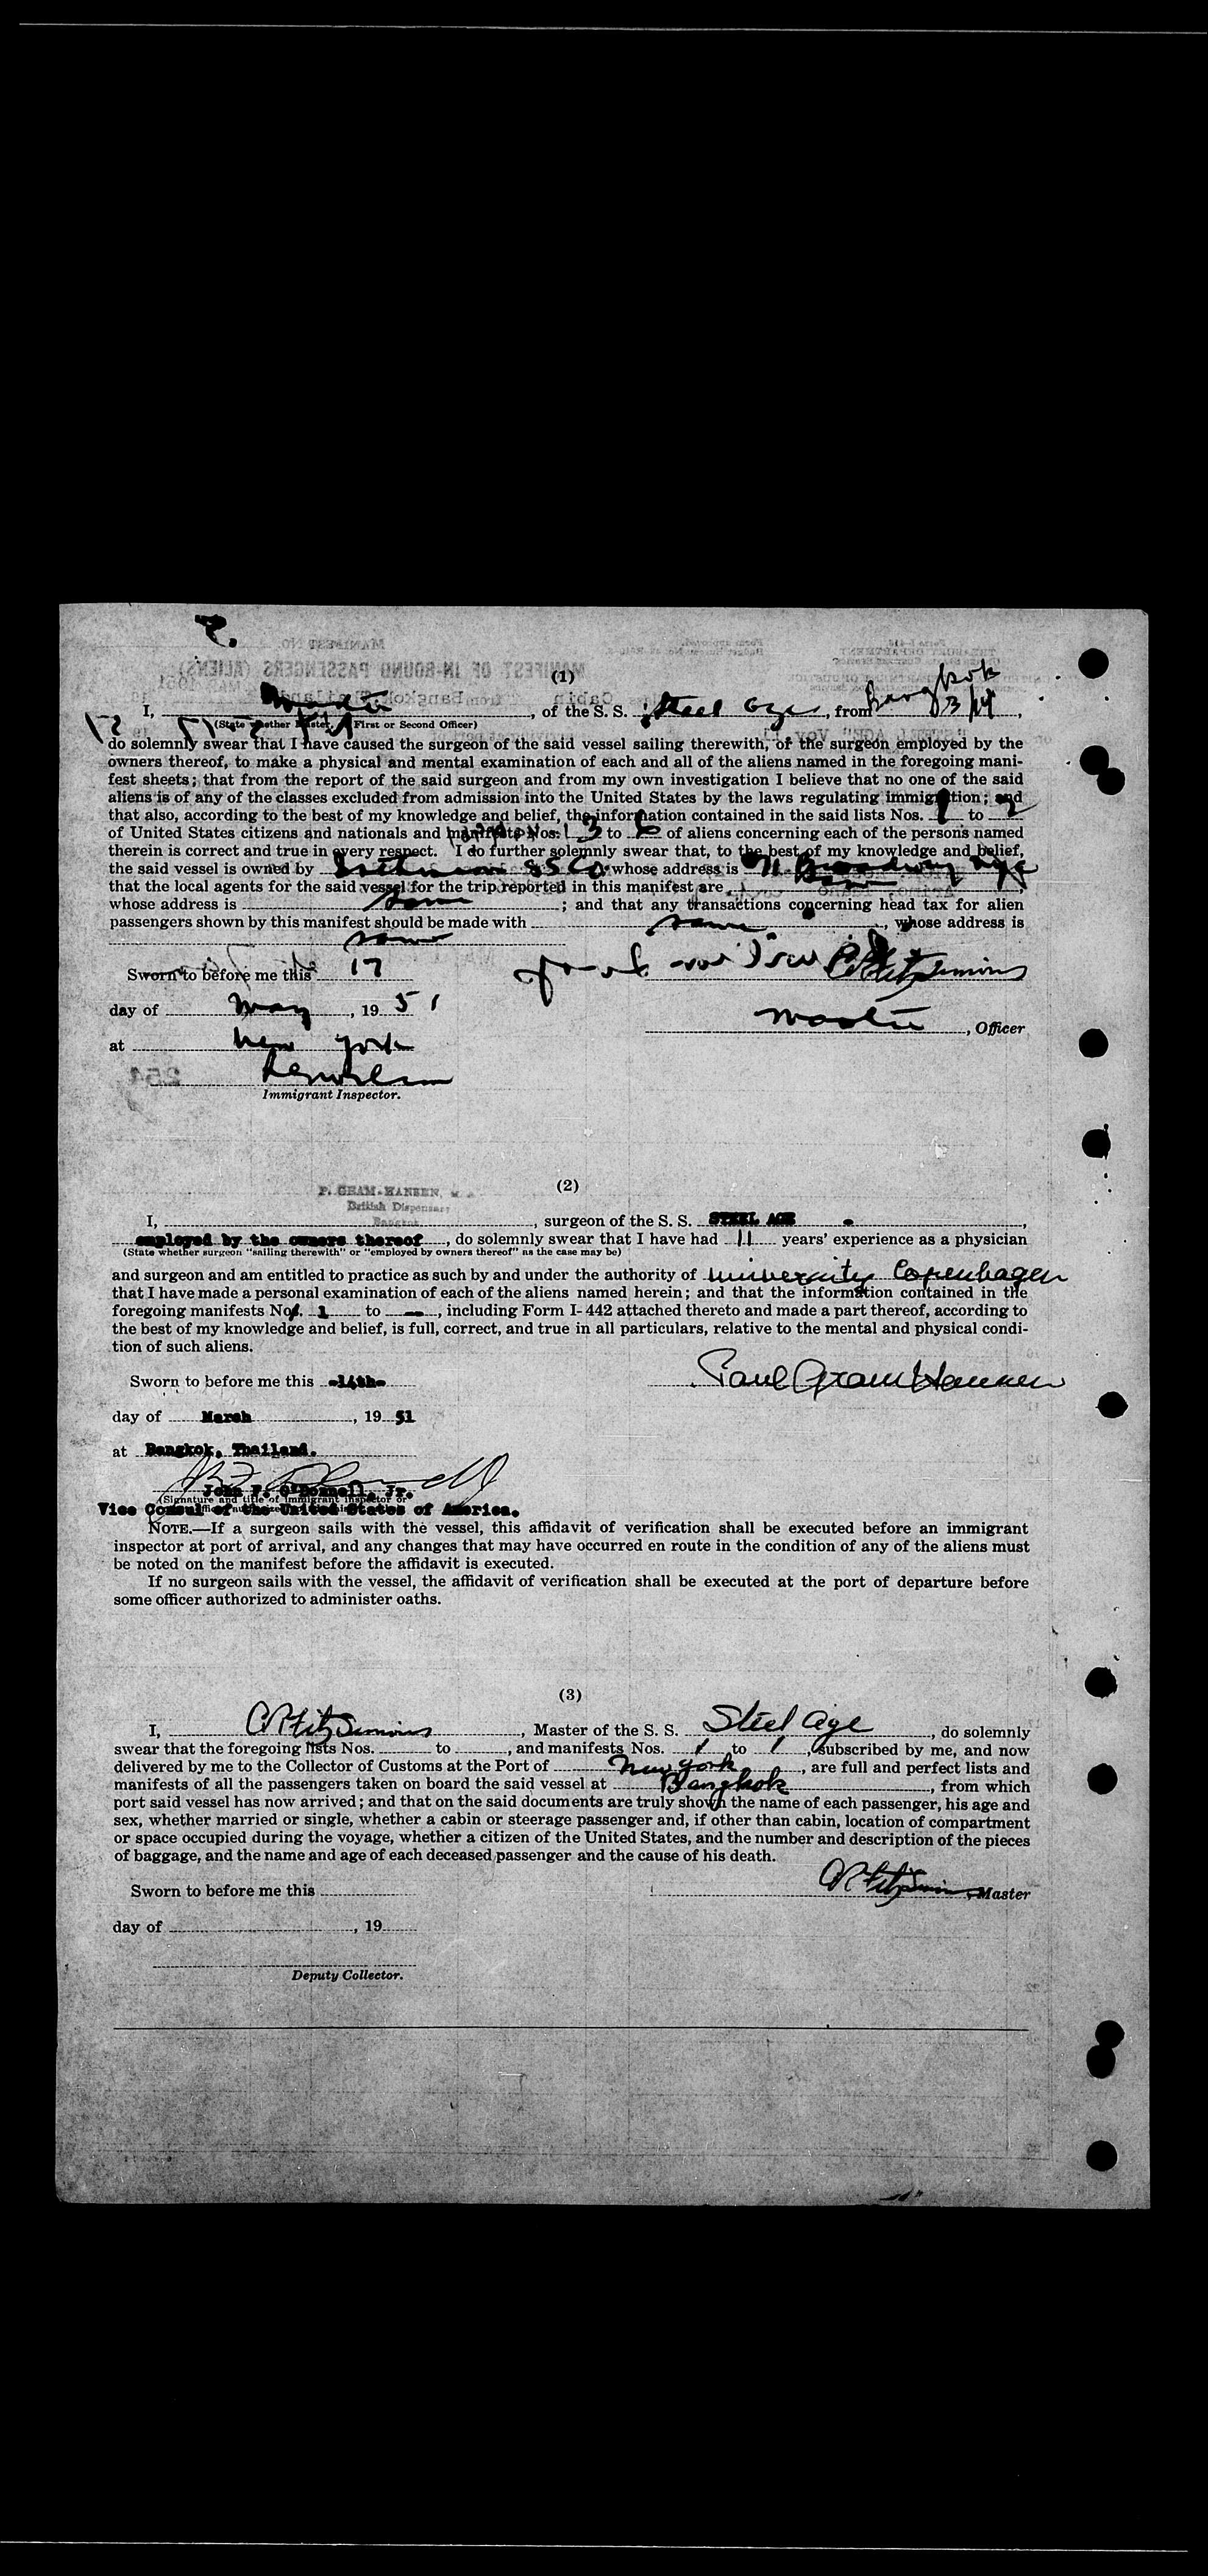 (1)
I, Master, of the S. S. Steel Age, from Bangkok 3/14,
(State whether Master, First or Second Officer)
do solemnly swear that I have caused the surgeon of the said vessel sailing therewith, or the surgeon employed by the
owners thereof, to make a physical and mental examination of each and all of the aliens named in the foregoing mani-
fest sheets; that from the report of the said surgeon and from my own investigation I believe that no one of the said
aliens is of any of the classes excluded from admission into the United States by the laws regulating immigration; and
that also, according to the best of my knowledge and belief, the information contained in the said lists Nos. 1 to 2
of United States citizens and nationals and manifests Nos. 3 to 6 of aliens concerning each of the persons named
therein is correct and true in every respect. I do further solemnly swear that, to the best of my knowledge and belief,
the said vessel is owned by Isthmian SS Co. whose address is 71 Broadway NYC
that the local agents for the said vessel for the trip reported in this manifest are same,
whose address is same; and that any transactions concerning head tax for alien
passengers shown by this manifest should be made with same, whose address is
same
Sworn to before me this 17
CR FitzSimmins
day of May, 1951
Master, Officer
at New York
Immigrant Inspector.
(2)
P. GRAM-HANSEN,
British Dispensary
Bangkok
I, , surgeon of the S. S. STEEL AGE,
employed by the owners thereof, do solemnly swear that I have had 11 years' experience as a physician
(State whether surgeon "sailing therewith" or "employed by owners thereof" as the case may be)
and surgeon and am entitled to practice as such by and under the authority of University Copenhagen
that I have made a personal examination of each of the aliens named herein; and that the information contained in the
foregoing manifests Nos. 1 to —, including Form I-442 attached thereto and made a part thereof, according to
the best of my knowledge and belief, is full, correct, and true in all particulars, relative to the mental and physical condi-
tion of such aliens.
Sworn to before me this -14th-
Paul Gram Hansen
day of March, 1951
at Bangkok, Thailand.
John F. O'Donnell, Jr.
(Signature and title of immigrant inspector or
Vice Consul of the United States of America.
NOTE.—If a surgeon sails with the vessel, this affidavit of verification shall be executed before an immigrant
inspector at port of arrival, and any changes that may have occurred en route in the condition of any of the aliens must
be noted on the manifest before the affidavit is executed.
If no surgeon sails with the vessel, the affidavit of verification shall be executed at the port of departure before
some officer authorized to administer oaths.
(3)
I, CR FitzSimmins, Master of the S. S. Steel Age, do solemnly
swear that the foregoing lists Nos. to , and manifests Nos. 1 to 1, subscribed by me, and now
delivered by me to the Collector of Customs at the Port of New York, are full and perfect lists and
manifests of all the passengers taken on board the said vessel at Bangkok, from which
port said vessel has now arrived; and that on the said documents are truly shown the name of each passenger, his age and
sex, whether married or single, whether a cabin or steerage passenger and, if other than cabin, location of compartment
or space occupied during the voyage, whether a citizen of the United States, and the number and description of the pieces
of baggage, and the name and age of each deceased passenger and the cause of his death.
Sworn to before me this
CR FitzSimmins, Master
day of , 19
Deputy Collector.